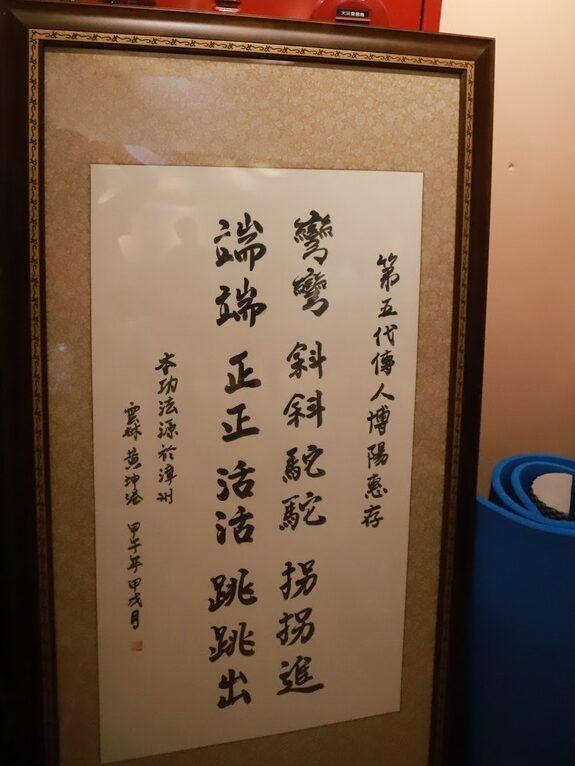 第五代傳人博陽惠存
彎彎斜斜駝駝拐拐進
端端正正活活跳跳出
本功法源於漳州
雲林 黃坤滄 甲午年甲戌月